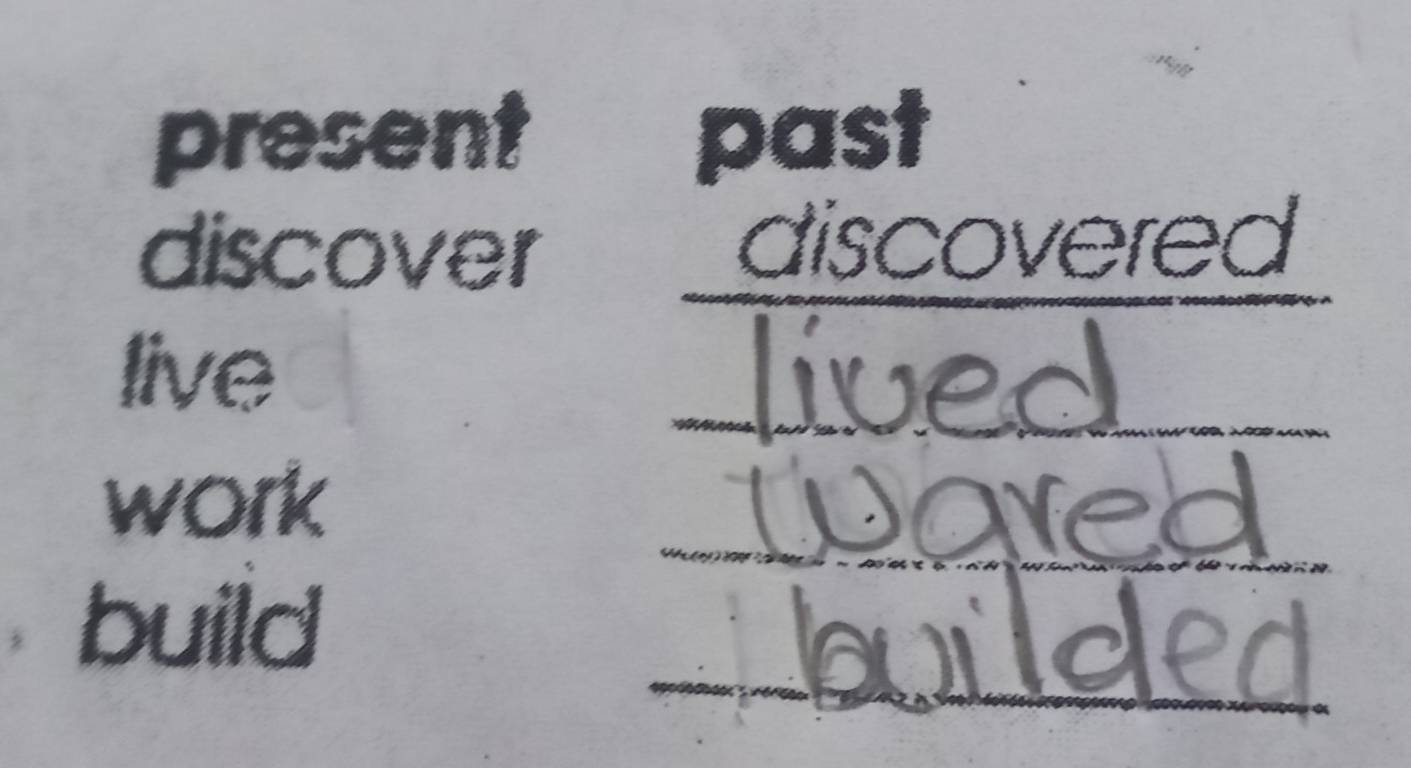 present past
discover discovered
live lived
work wared
build builded